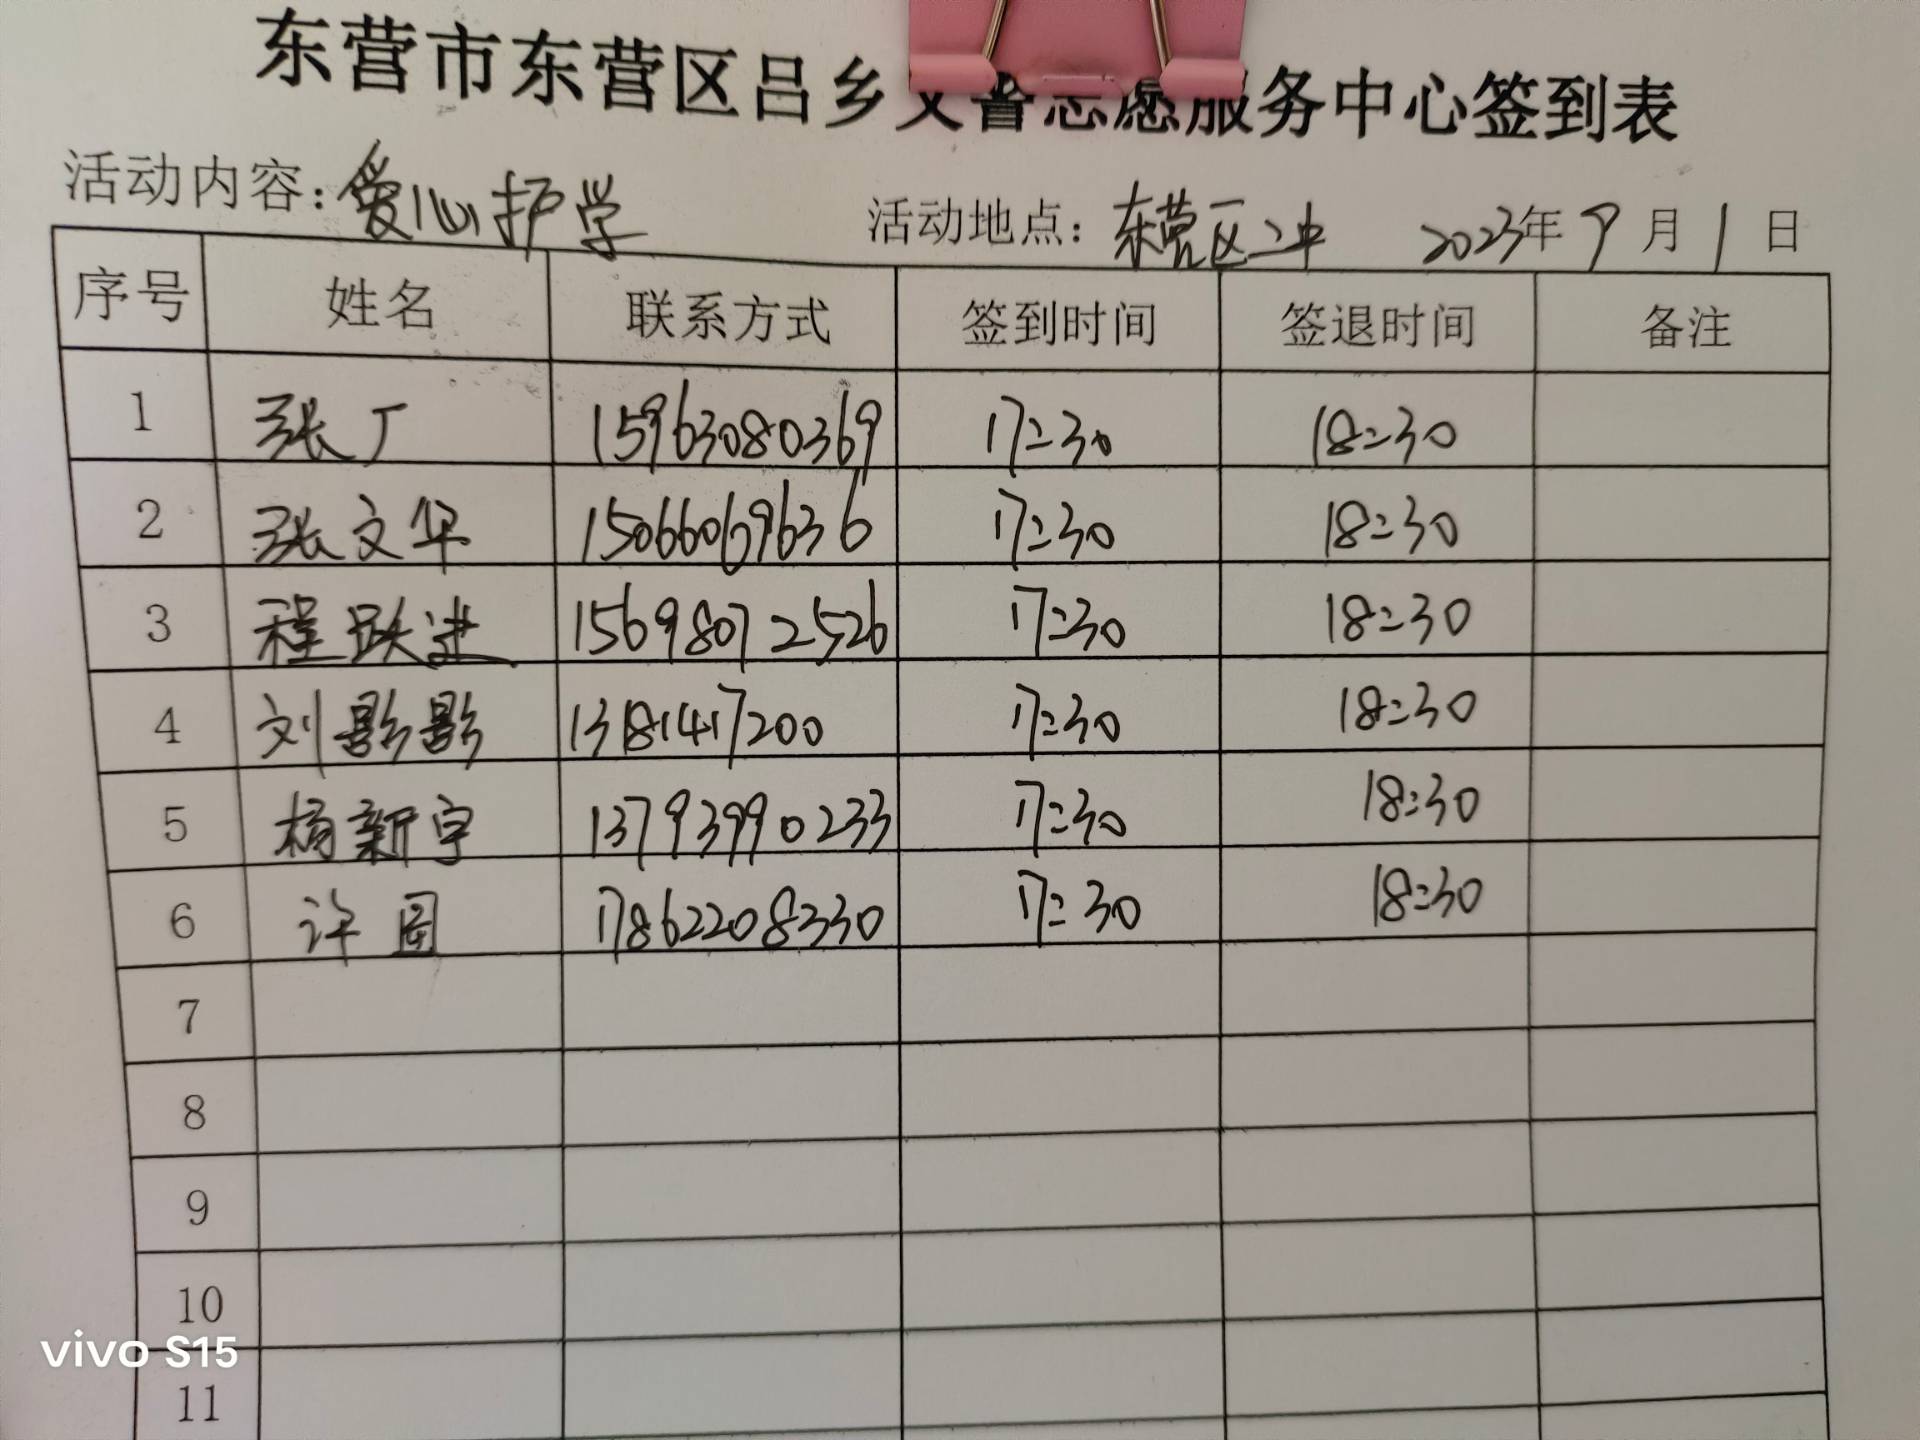 东营市东营区吕乡文普志愿服务中心签到表
活动内容：爱心护学 活动地点：东营区二中 2023年9月1日
序号 姓名 联系方式 签到时间 签退时间 备注
1 张广 15963080369 17:30 18:30
2 张文华 15066069636 17:30 18:30
3 程跃进 15698072526 17:30 18:30
4 刘影影 13181417200 17:30 18:30
5 杨新宇 13793990233 17:30 18:30
6 许圆 17862208330 17:30 18:30
7
8
9
10
11
vivo S15